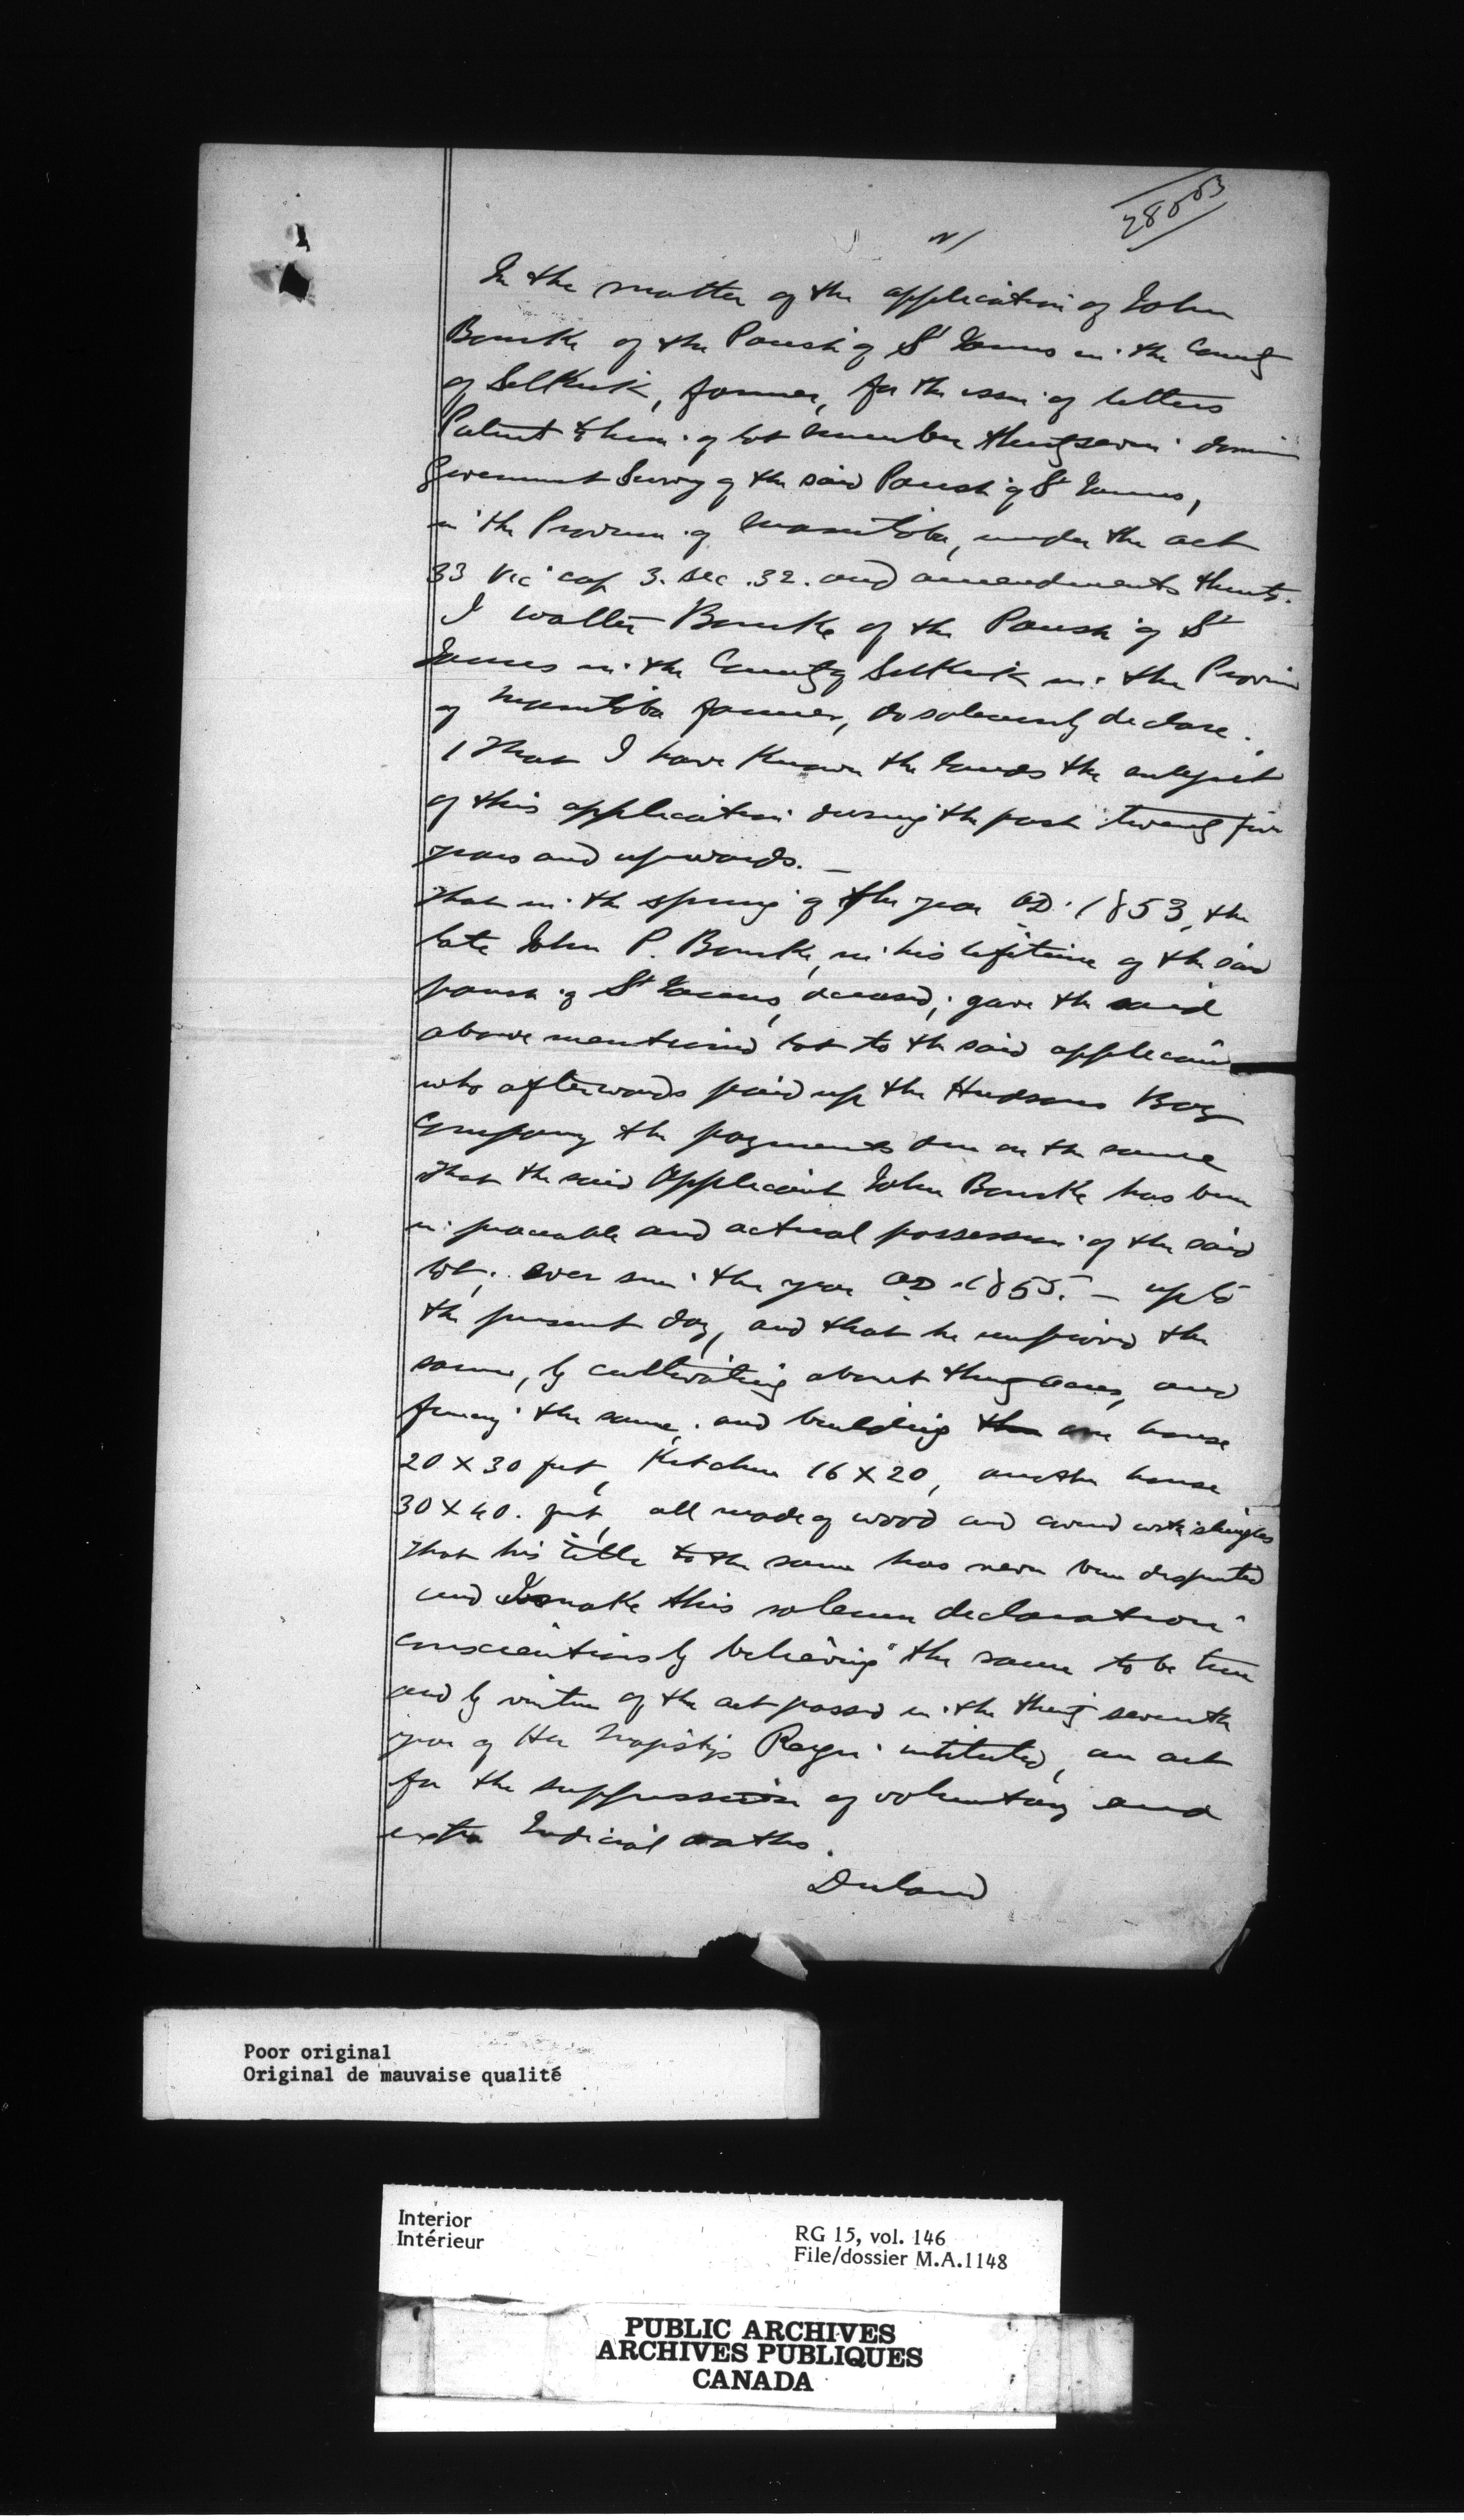 In the matter of the application of John
Bourke of the Parish of St James in the County
of Selkirk, farmer, for the issue of letters
Patent to him of lot number thirty seven
Government Survey of the said Parish of St James,
in the Province of Manitoba, under the act
33 Vic cap 3. sec. 32. and amendments thereto.
I Walter Bourke of the Parish of St
James in the County of Selkirk in the Province
of Manitoba farmer, do solemnly declare.
1 That I have known the lands the subject
of this application during the past twenty five
years and upwards. —
That in the spring of the year AD. 1853, the
late John P. Bourke, in his lifetime of the said
parish of St James, deceased, gave the said
above mentioned lot to the said applicant
who afterwards paid up the Hudsons Bay
Company the payments due on the same
That the said Applicant John Bourke has been
in peaceable and actual possession of the said
lot, ever since the year AD. 1855. — up to
the present day, and that he improved the
same, by cultivating about thirty acres, and
fencing the same, and building one house
20 x 30 feet, Kitchen 16 x 20, another house
30 x 40. feet, all made of wood and covered with shingles
That his title to the same has never been disputed
and I make this solemn declaration
conscientiously believing the same to be true
and by virtue of the act passed in the thirty seventh
year of Her Majestys Reign intituled, an act
for the suppression of voluntary and
extra Judicial oaths.
Poor original
Original de mauvaise qualité
Interior
Intérieur
RG 15, vol. 146
File/dossier M.A.1148
PUBLIC ARCHIVES
ARCHIVES PUBLIQUES
CANADA